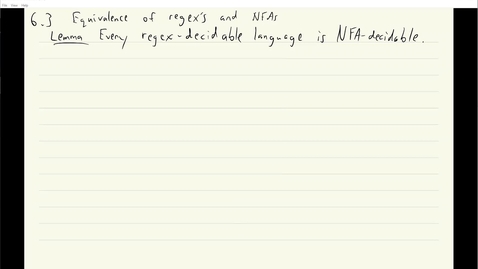 6.3 Equivalence of regex's and NFAs
Lemma Every regex-decidable language is NFA-decidable.